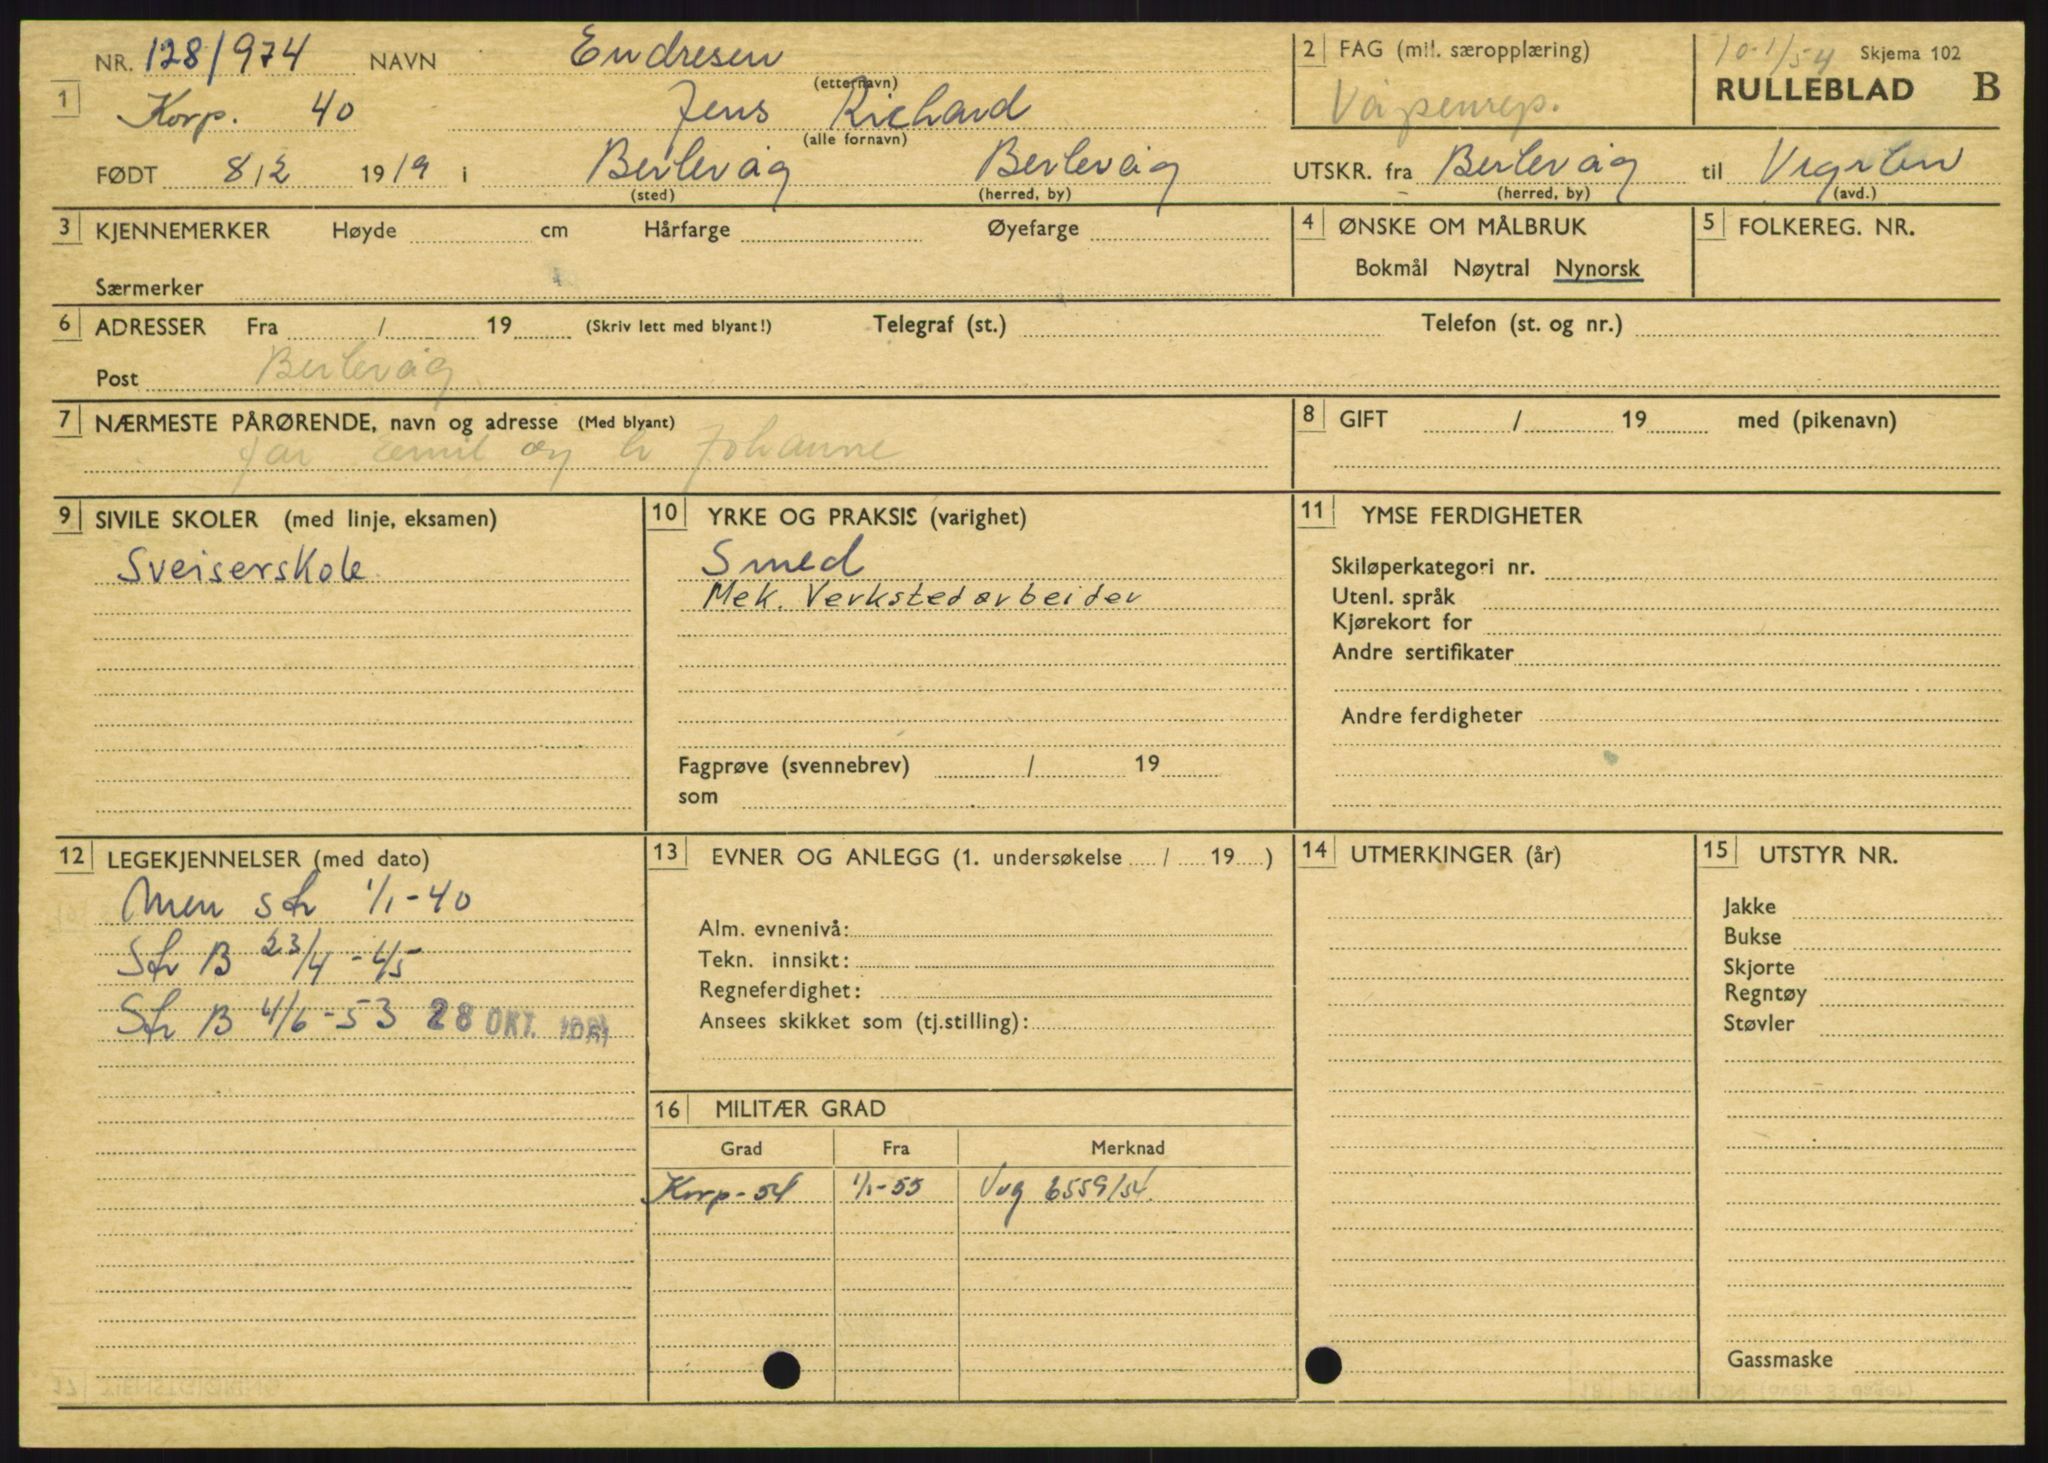 NR. 128/974 NAVN Endresen
(etternavn)
2 FAG (mil. særopplæring)
10-1/54 Skjema 102
1 Korp. 40 Jens Richard
(alle fornavn)
Våpenrep.
RULLEBLAD B
FØDT 8/2 1919 i Berlevåg Berlevåg
(sted) (herred, by)
UTSKR. fra Berlevåg til
(herred, by) (avd.)
3 KJENNEMERKER Høyde cm Hårfarge Øyefarge
Særmerker
4 ØNSKE OM MÅLBRUK
Bokmål Nøytral Nynorsk
5 FOLKEREG. NR.
6 ADRESSER Fra / 19 (Skriv lett med blyant!) Telegraf (st.) Telefon (st. og nr.)
Post Berlevåg
7 NÆRMESTE PÅRØRENDE, navn og adresse (Med blyant)
far Emil og Johanne
8 GIFT / 19 med (pikenavn)
9 SIVILE SKOLER (med linje, eksamen)
Sveiserskole
10 YRKE OG PRAKSIS (varighet)
Smed
Mek. Verkstedarbeider
Fagprøve (svennebrev) / 19
som
11 YMSE FERDIGHETER
Skiløperkategori nr.
Utenl. språk
Kjørekort for
Andre sertifikater
Andre ferdigheter
12 LEGEKJENNELSER (med dato)
str 1/1-40
Str B 23/4-45
Str B 4/6-53 28 OKT.
13 EVNER OG ANLEGG (1. undersøkelse / 19 )
Alm. evnenivå:
Tekn. innsikt:
Regneferdighet:
Ansees skikket som (tj.stilling):
14 UTMERKINGER (år)
15 UTSTYR NR.
Jakke
Bukse
Skjorte
Regntøy
Støvler
Gassmaske
16 MILITÆR GRAD
Grad Fra Merknad
Korp-54 1/1-55 Vug 6559/54